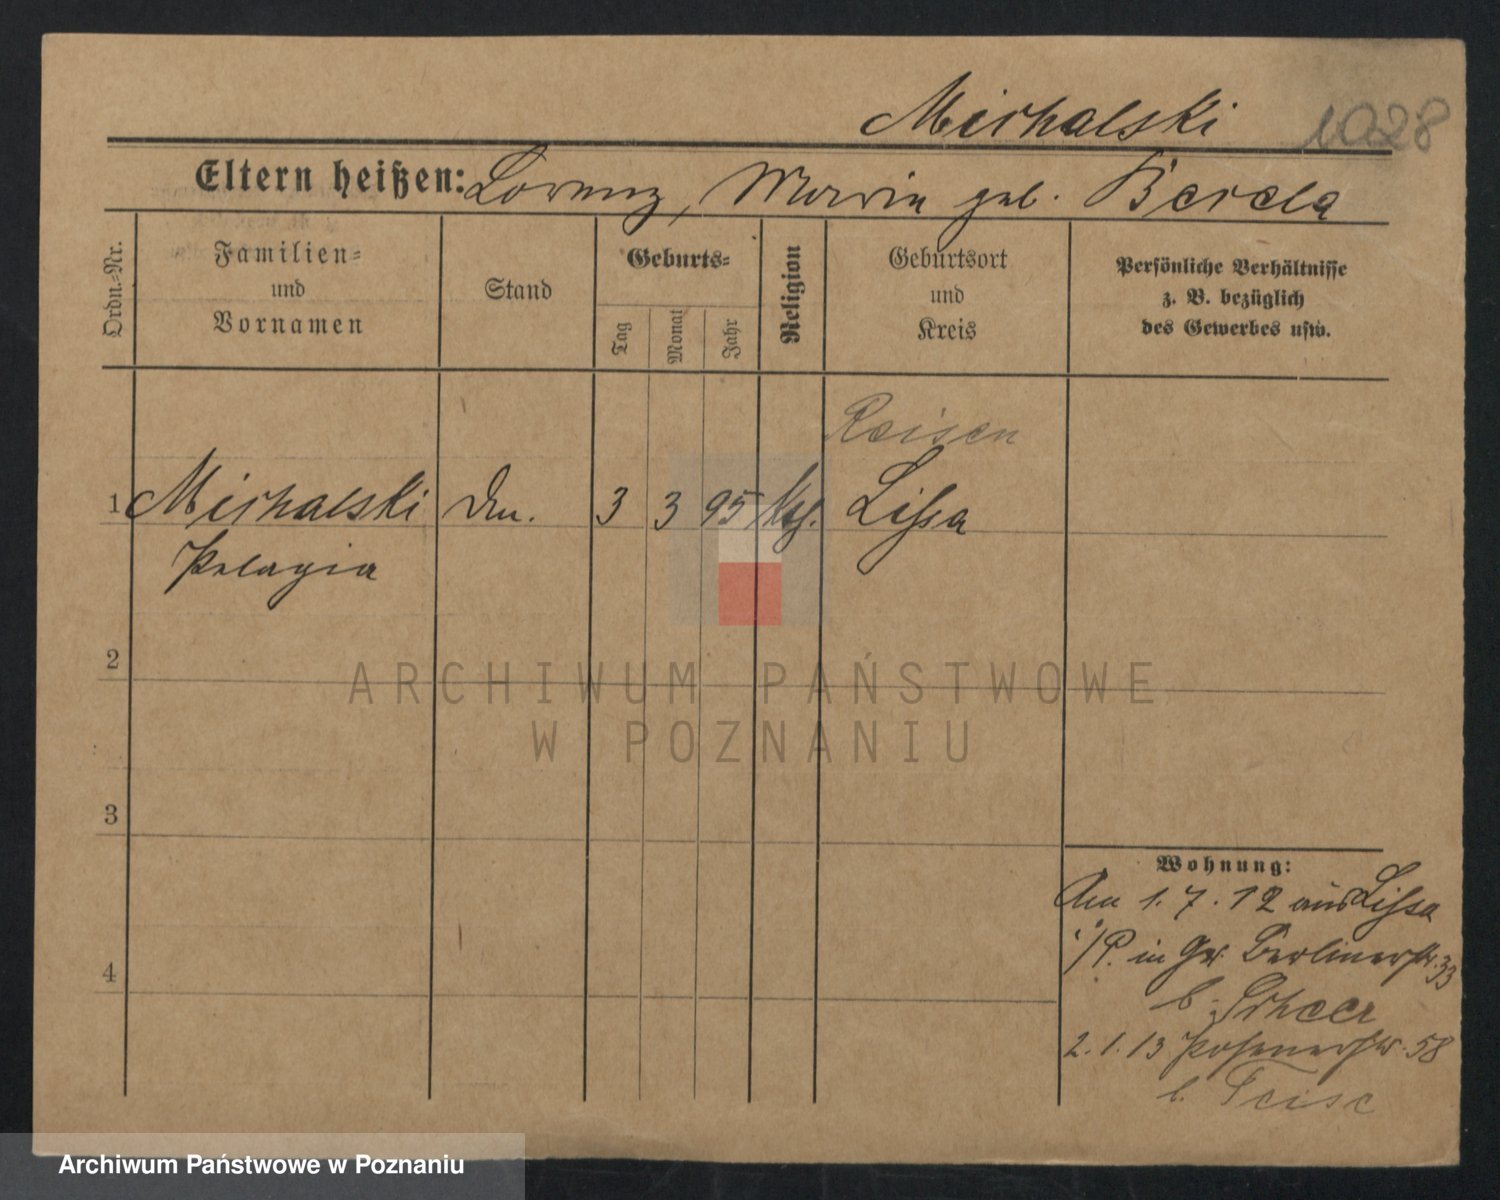 Michalski 1028
Eltern heißen: Lorenz, Maria geb. Berela
Ordn.-Nr.
Familien-
und
Vornamen
Stand
Geburts-
Tag
Monat
Jahr
Religion
Geburtsort
und
Kreis
Persönliche Verhältnisse
z. B. bezüglich
des Gewerbes usw.
Reisen
1 Michalski 3 3 95 Lissa
Pelagia
2
3
4
Wohnung:
Am 1.7.12 aus Lissa
i/P. in Gr. Berlinerstr. 33
b. Scheer
2.1.13 Posenerstr. 58
b. Teise
ARCHIWUM PAŃSTWOWE
W POZNANIU
Archiwum Państwowe w Poznaniu